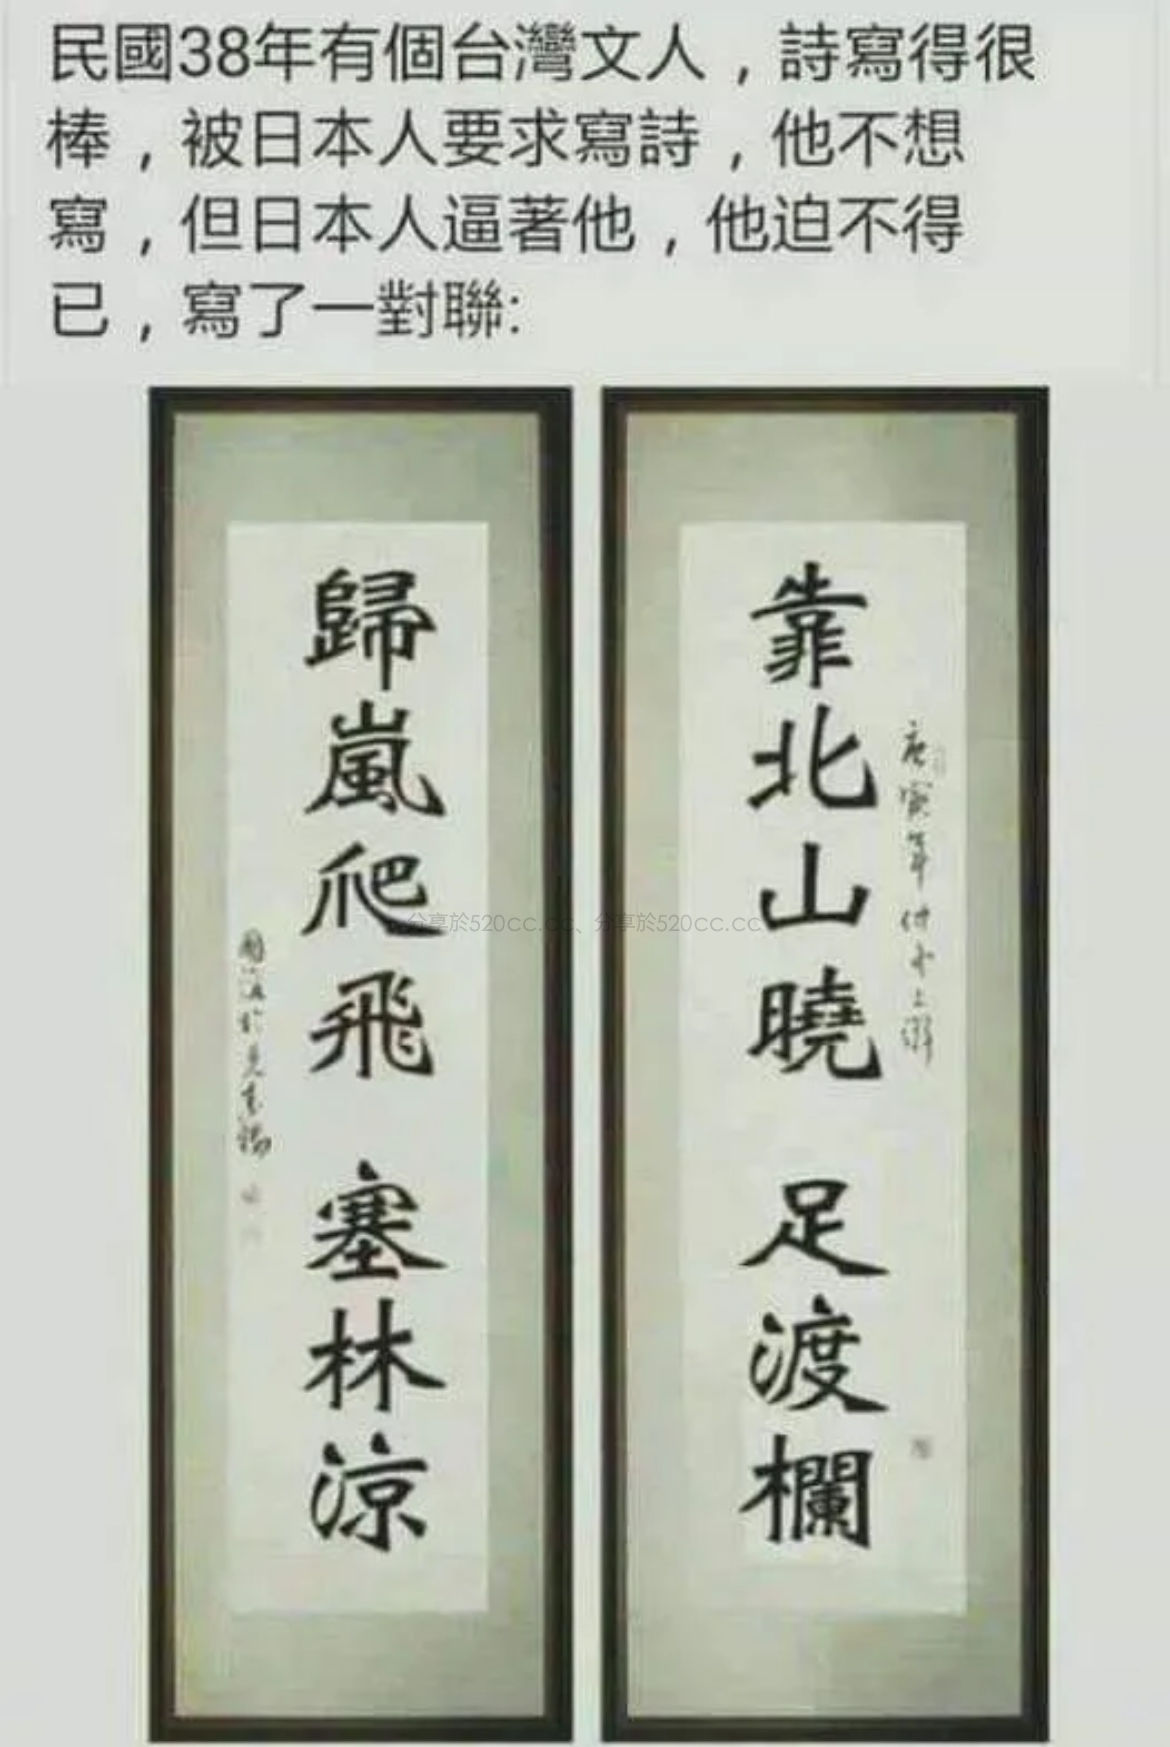 民國38年有個台灣文人，詩寫得很
棒，被日本人要求寫詩，他不想
寫，但日本人逼著他，他迫不得
已，寫了一對聯:
靠北山曉 足渡欄
歸嵐爬飛 塞林涼
分享於520cc.cc、分享於520cc.cc